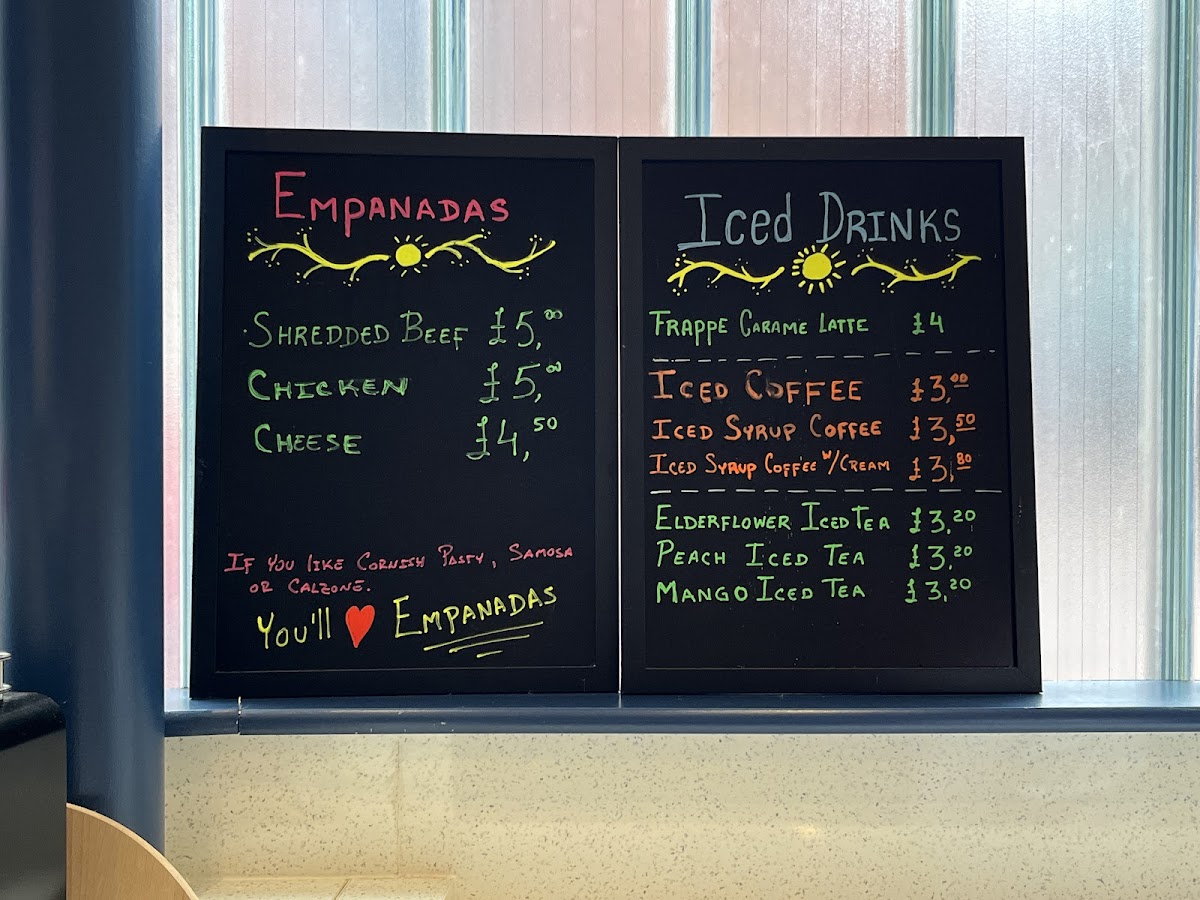 Empanadas
Shredded Beef £5,00
Chicken £5,00
Cheese £4,50
If you like Cornish Pasty, Samosa
or Calzone.
You'll ♥ Empanadas
Iced Drinks
Frappe Carame Latte £4
Iced Coffee £3,00
Iced Syrup Coffee £3,50
Iced Syrup Coffee w/Cream £3,80
Elderflower Iced Tea £3,20
Peach Iced Tea £3,20
Mango Iced Tea £3,20